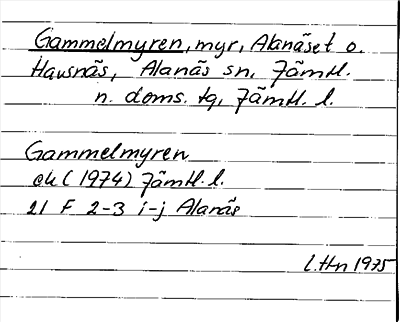 Gammelmyren, myr, Alanäset o.
Havsnäs, Alanäs sn, Jämtl.
n. doms. tg, Jämtl. l.
Gammelmyren
ek (1974) Jämtl. l.
21 F 2-3 i-j Alanäs
L.Hn 1975